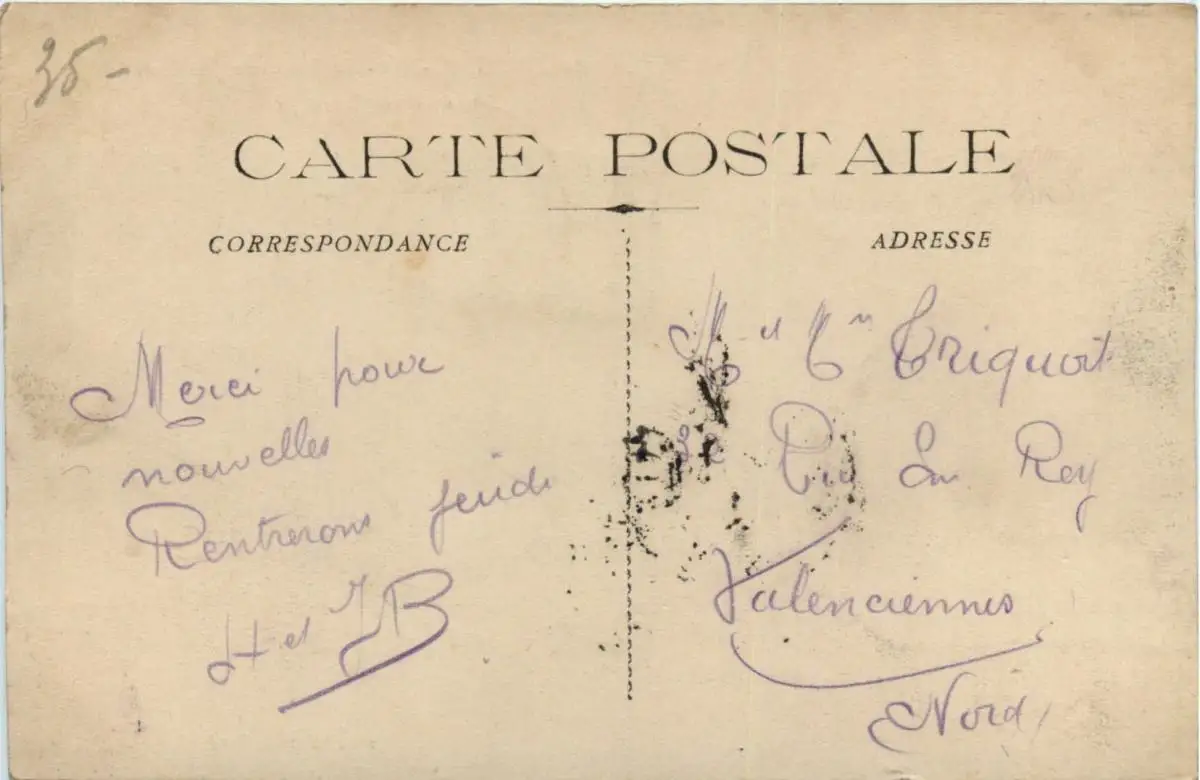 35-
CARTE POSTALE
CORRESPONDANCE
ADRESSE
Merci pour
nouvelles
Rentrerons jeudi
H et JB
M et Mme Triquoit
Rue du Rey
Valenciennes
Nord